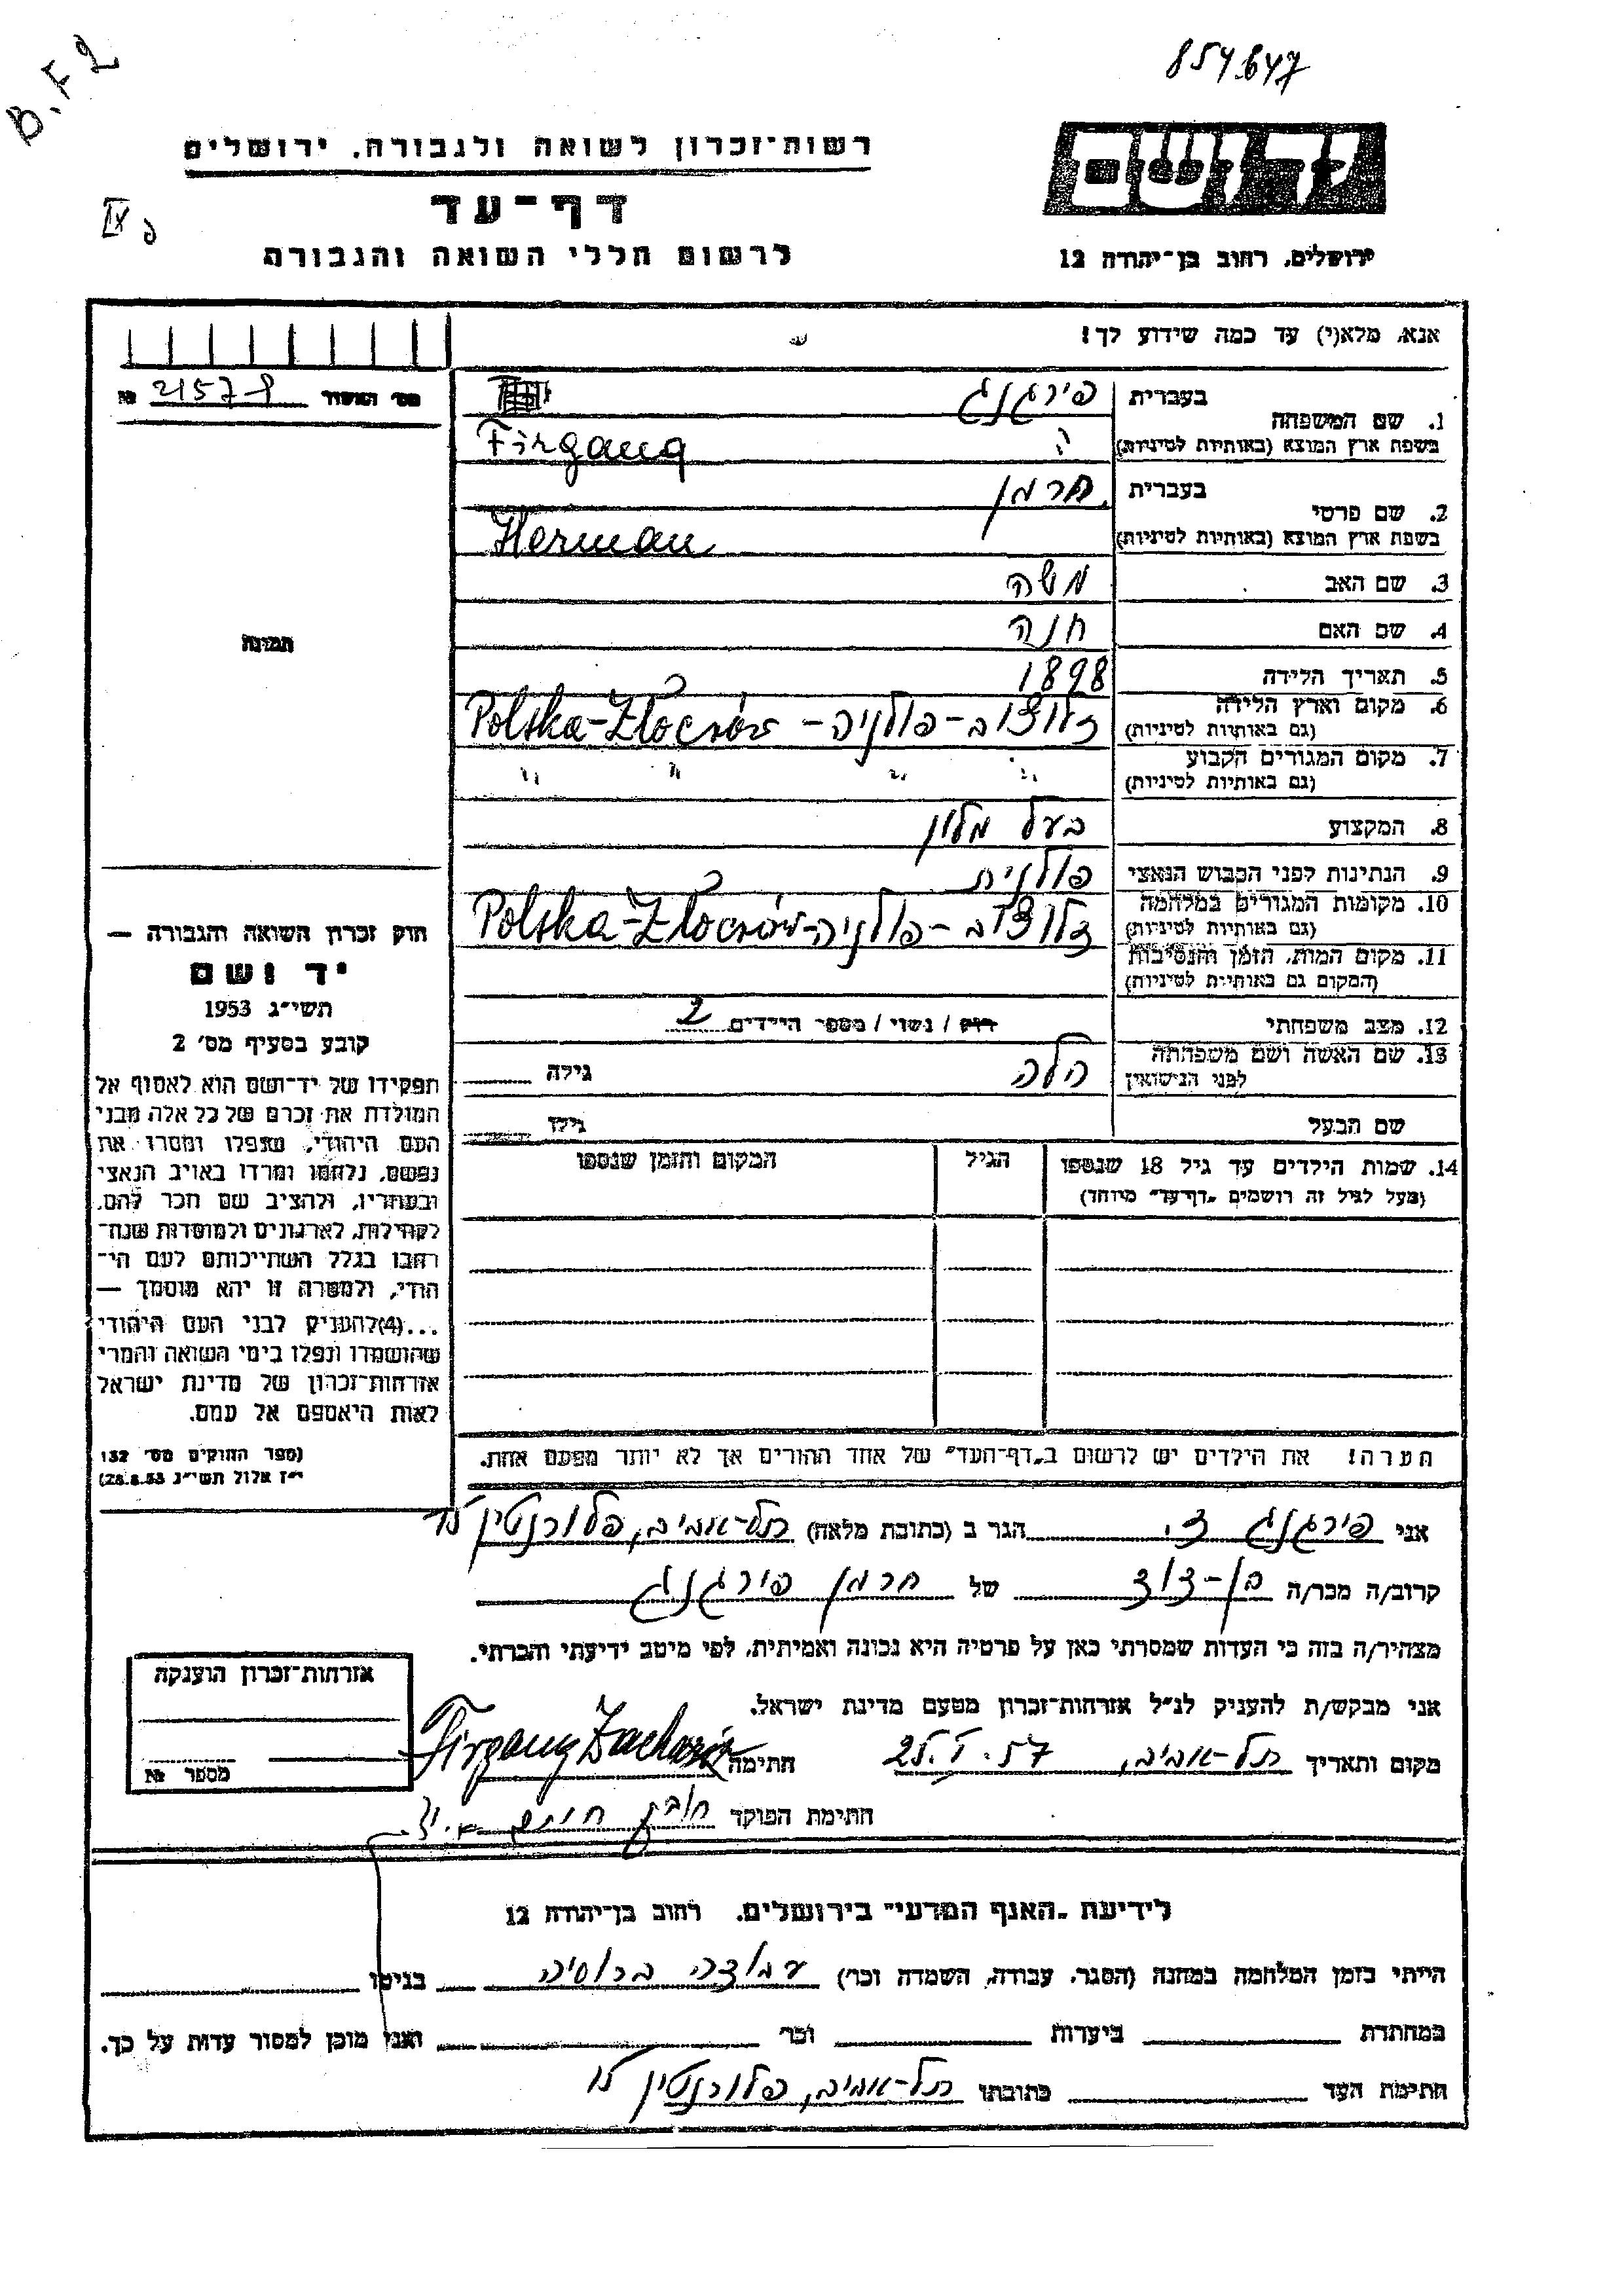 B.F2
854647
רשות־זכרון לשואה ולגבורה, ירושלים
דף־עד
לרשום חללי השואה והגבורה
IX
יד ושם
ירושלים, רחוב בן־יהודה 12
אנא, מלא(י) עד כמה שידוע לך!
מס' האשור 21579 №
1. שם המשפחה
בעברית פירגנג
בשפת ארץ המוצא (באותיות לטיניות) Firgang
2. שם פרטי
בעברית הרמן
בשפת ארץ המוצא (באותיות לטיניות) Herman
3. שם האב משה
4. שם האם חנה
5. תאריך הלידה 1898
6. מקום וארץ הלידה
(גם באותיות לטיניות) זלוצ'וב - פולניה - Polska - Złoczów
7. מקום המגורים הקבוע
(גם באותיות לטיניות) " " " "
8. המקצוע בעל מלון
9. הנתינות לפני הכבוש הנאצי פולנית
10. מקומות המגורים במלחמה
(גם באותיות לטיניות) זלוצ'וב - פולניה - Polska - Złoczów
11. מקום המות, הזמן והנסיבות
(המקום גם באותיות לטיניות)
12. מצב משפחתי רוק / נשוי / מספר הילדים 2
13. שם האשה ושם משפחתה
לפני הנישואין הלה גילה
שם הבעל גילו
14. שמות הילדים עד גיל 18 שנספו
(מעל לגיל זה רושמים "דף־עד" מיוחד)
הגיל
המקום והזמן שנספו
הערה! את הילדים יש לרשום ב"דף־העד" של אחד ההורים אך לא יותר מפעם אחת.
תמונה
חוק זכרון השואה והגבורה —
יד ושם
תשי"ג 1953
קובע בסעיף מס' 2
תפקידו של יד־ושם הוא לאסוף אל
המולדת את זכרם של כל אלה מבני
העם היהודי, שנפלו ומסרו את
נפשם, נלחמו ומרדו באויב הנאצי
ובעוזריו, ולהציב שם וזכר להם,
לקהילות, לארגונים ולמוסדות שנח־
רבו בגלל השתייכותם לעם הי־
הודי, ולמטרה זו יהא מוסמך —
...(4)להעניק לבני העם היהודי
שהושמדו ונפלו בימי השואה והמרי
אזרחות־זכרון של מדינת ישראל
לאות היאספם אל עמם.
(ספר החוקים מס' 132
י"ז אלול תשי"ג 28.8.53)
אני פירגנג צ. הגר ב (כתובת מלאה) תל-אביב, פלורנטין
קרוב/ה מכר/ה בן-דוד של הרמן פירגנג
מצהיר/ה בזה כי העדות שמסרתי כאן על פרטיה היא נכונה ואמיתית, לפי מיטב ידיעתי והכרתי.
אני מבקש/ת להעניק לנ"ל אזרחות־זכרון מטעם מדינת ישראל.
מקום ותאריך תל-אביב, 25.I.57 חתימה Firgang Zacharia
חתימת הפוקד
אזרחות־זכרון הוענקה
מספר №
לידיעת "האגף המדעי" בירושלים, רחוב בן־יהודה 12
הייתי בזמן המלחמה במחנה (הסגר, עבודה, השמדה וכו') עבודה ברוסיה בגיטו
במחתרת ביערות וכו' ואני מוכן למסור עדות על כך.
חתימת העד כתובתו תל-אביב, פלורנטין